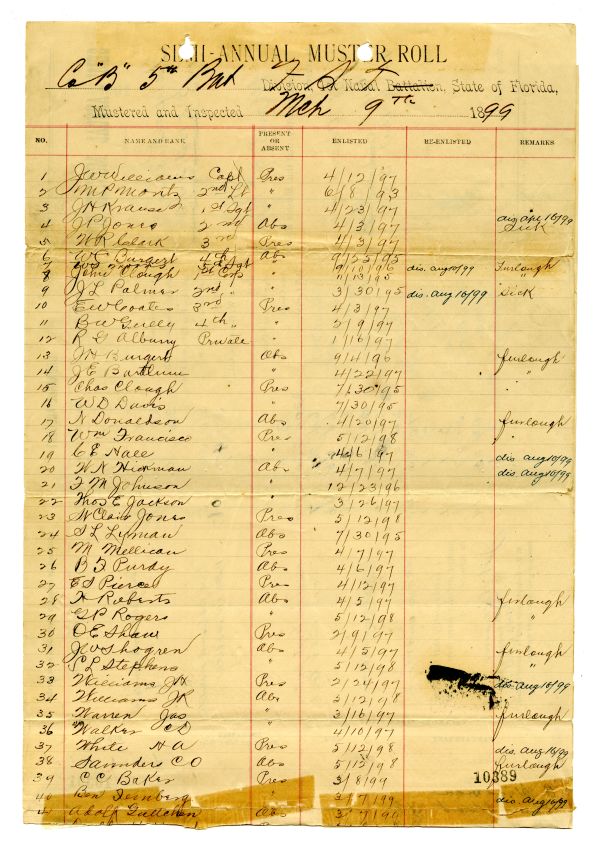 SEMI-ANNUAL MUSTER ROLL
Co "B" 5th Bat F. S. T. Division, 1st Naval Battalion, State of Florida,
Mustered and Inspected Mch 9th 1899
NO. NAME AND RANK PRESENT OR ABSENT ENLISTED RE-ENLISTED REMARKS
1 J W Williams Capt Pres 4/12/97
2 M P Moritz 2nd Lt " 6/8/93
3 J H Krause 1st Sgt " 4/23/97
4 J P Jones 2nd Abs 4/3/97 dis. Apr 16/99 Sick
5 W R Clark 3rd Pres 4/3/97
6 W E Burgert 4th Abs 9/23/95
7 5th Sgt " 9/10/96 dis. aug 10/99 Furlough
8 Clough 1st Corp "
9 J L Palmer 2nd " " 3/30/95 dis. Aug 16/99 Sick
10 E W Coates 3rd Pres 4/3/97
11 B W Guilly 4th " " 2/9/97
12 R G Albury Private " 1/16/97
13 J H Burgert Abs 9/4/96 furlough
14 J E Bartlum " 4/22/97 "
15 Chas Clough Pres 7/30/95
16 W D Davis " 7/30/95
17 N Donaldson Abs 4/20/97 furlough
18 Wm Francisco Pres 5/12/98 "
19 C E Hall " 4/6/97 dis. aug 10/99
20 W N Hickman Abs 4/7/97 dis. aug 10/99
21 F M Johnson " 12/23/96
22 Thos E Jackson " 3/26/97
23 St Clair Jones Pres 5/12/98
24 S L Lyman Abs 7/30/95
25 M Mellican Pres 4/7/97
26 B F Purdy Abs 4/6/97
27 E S Pierce Pres 4/12/97
28 H Roberts Abs 4/5/97 furlough
29 G P Rogers " 5/12/98 "
30 O E Shaw Pres 2/9/97
31 J W Shogren Abs 4/5/97 furlough
32 S L Stephens " 5/12/98 "
33 Williams J H Pres 2/24/97 dis. aug 16/99
34 Williams J R Abs 5/12/98
35 Warren Jas " 3/16/97 furlough
36 Walker C D " 4/10/97
37 White H A Pres 5/12/98 dis. Aug 16/99
38 Saunders C O Abs 5/12/98 Furlough
39 C C Baker Pres 3/8/99 10389
40 Ben " 3/7/99 dis. Aug 16/99
4 Adolf Abs 3/7/99